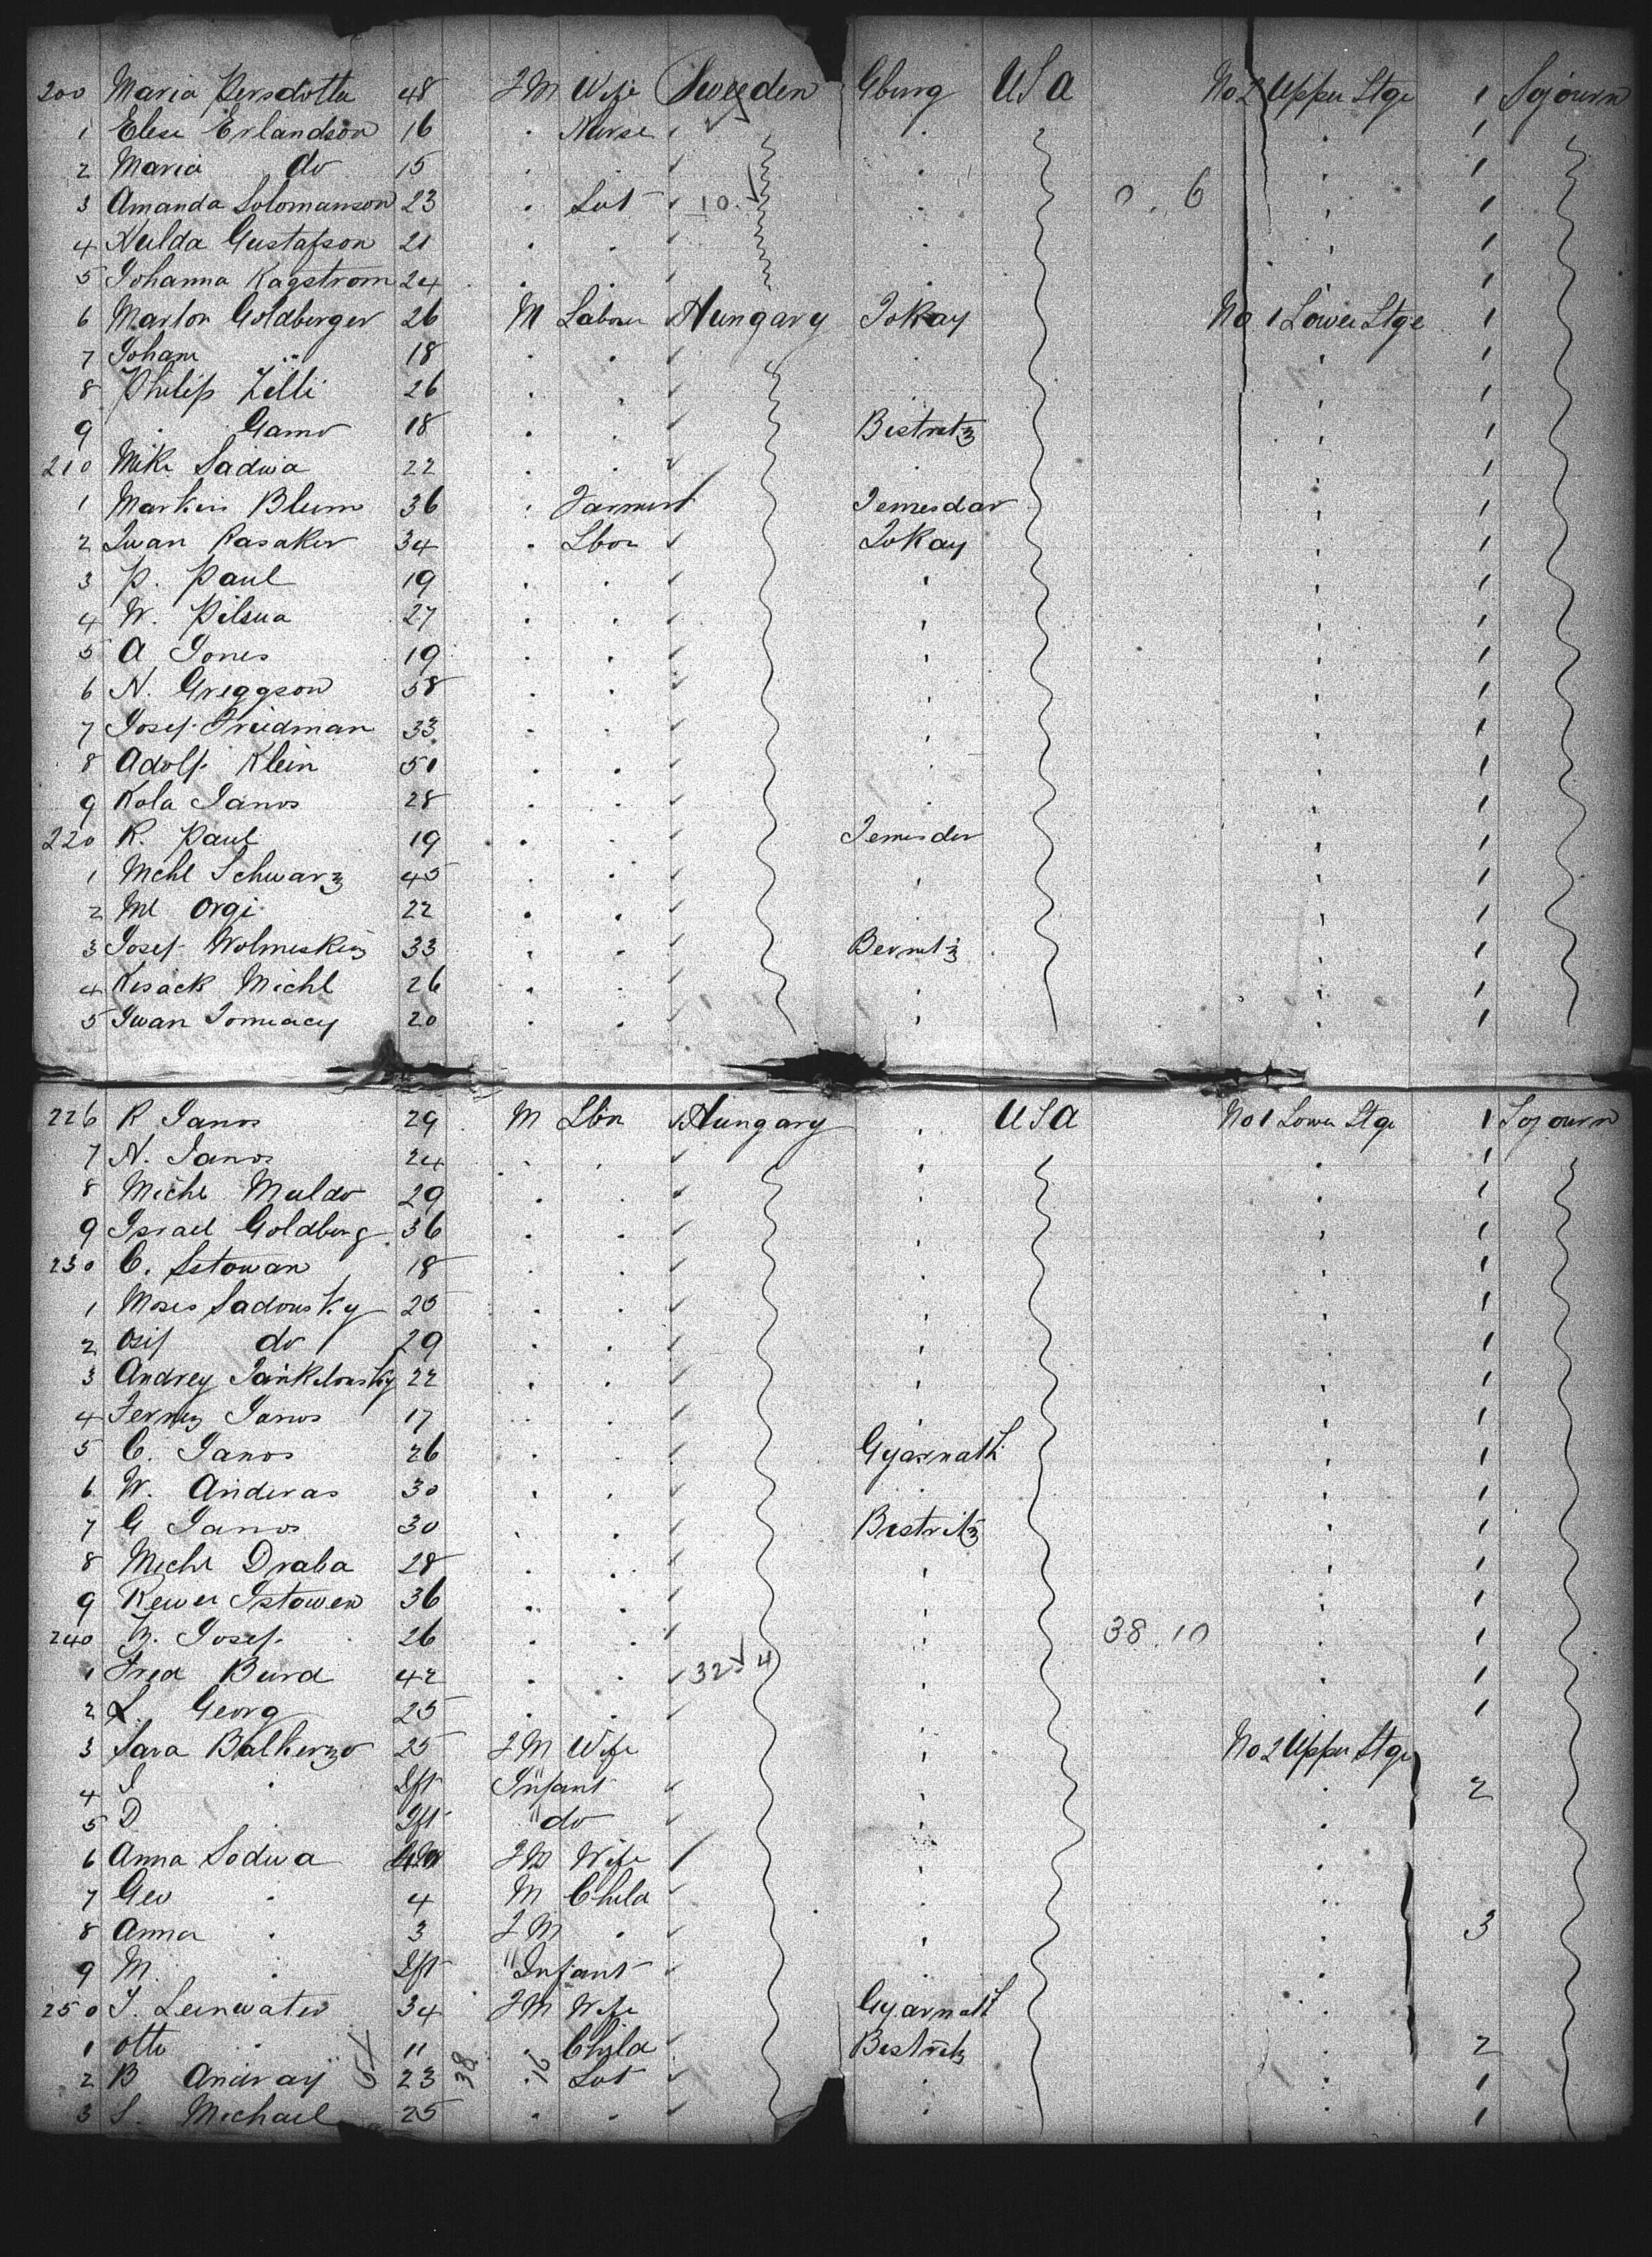 200 Maria Persdotta 48 F M Wife Sweeden Gburg USA No 2 Upper Stge 1 Sojourn
1 Elese Erlandson 16 . Nurse 1
2 Maria do 15 . . 1
3 Amanda Solomanson 23 . Sut 10 0.6 1
4 Hulda Gustafson 21 . . 1
5 Johanna Kagstrom 24 . . 1
6 Marlon Goldberger 26 M Labour Hungary Tokay No 1 Lower Stge 1
7 Joham " 18 . . 1
8 Philip Zelli 26 . . 1
9 . Gamo 18 . . Bistretz 1
210 Mike Sadwa 22 . . 1
1 Markus Blum 36 . Farmer Temesdar 1
2 Iwan Kasaker 34 . Lbor Tokay 1
3 P. Paul 19 . . 1
4 W. Pilsua 27 . . 1
5 A Jones 19 . . 1
6 N. Greggson 58 . . 1
7 Josef Friedman 33 . . 1
8 Adolf Klein 50 . . 1
9 Kola Janos 28 . . 1
220 R. Paul 19 . . Temesder 1
1 Mchl Schwarz 45 . . 1
2 Ml Orgi 22 . . 1
3 Josef Wolmeskey 33 . . Bernetz 1
4 Kisack Michl 26 . . 1
5 Iwan Tomeacy 20 . . 1
226 R Janos 29 M Lbr Hungary USA No 1 Lower Stge 1 Sojourn
7 N. Janos 24 . . 1
8 Michl Muldo 29 . . 1
9 Israel Goldberg 36 . . 1
230 C. Istowan 18 . . 1
1 Moses Sadousky 25 . . 1
2 Osif do 29 . . 1
3 Andrey Jankelousky 22 . . 1
4 Ferney Janos 17 . . 1
5 C. Janos 26 . . Gyarnath 1
6 W. Anderas 30 . . 1
7 G Janos 30 . . Bistritz 1
8 Michl Draba 28 . . 1
9 Rewer Istowen 36 . . 1
240 M. Josef 26 . . 38.10 1
1 Fred Burd 42 . . 32 4 1
2 L. Georg 25 . . 1
3 Sara Balherzo 25 F M Wife No 2 Upper Stge
4 I . Ift Infant 2
5 D Ift " do
6 Anna Sodwa F M Wife
7 Geo . 4 M Child
8 Anna . 3 F M . 3
9 M. . Ift " Infant
250 I. Leinwater 34 F M Wife Gyarnath
1 Otto . 11 . Child Bestretz 2
2 B Andray 23 38 . 16 Sut 1
3 S. Michael 25 . . 1